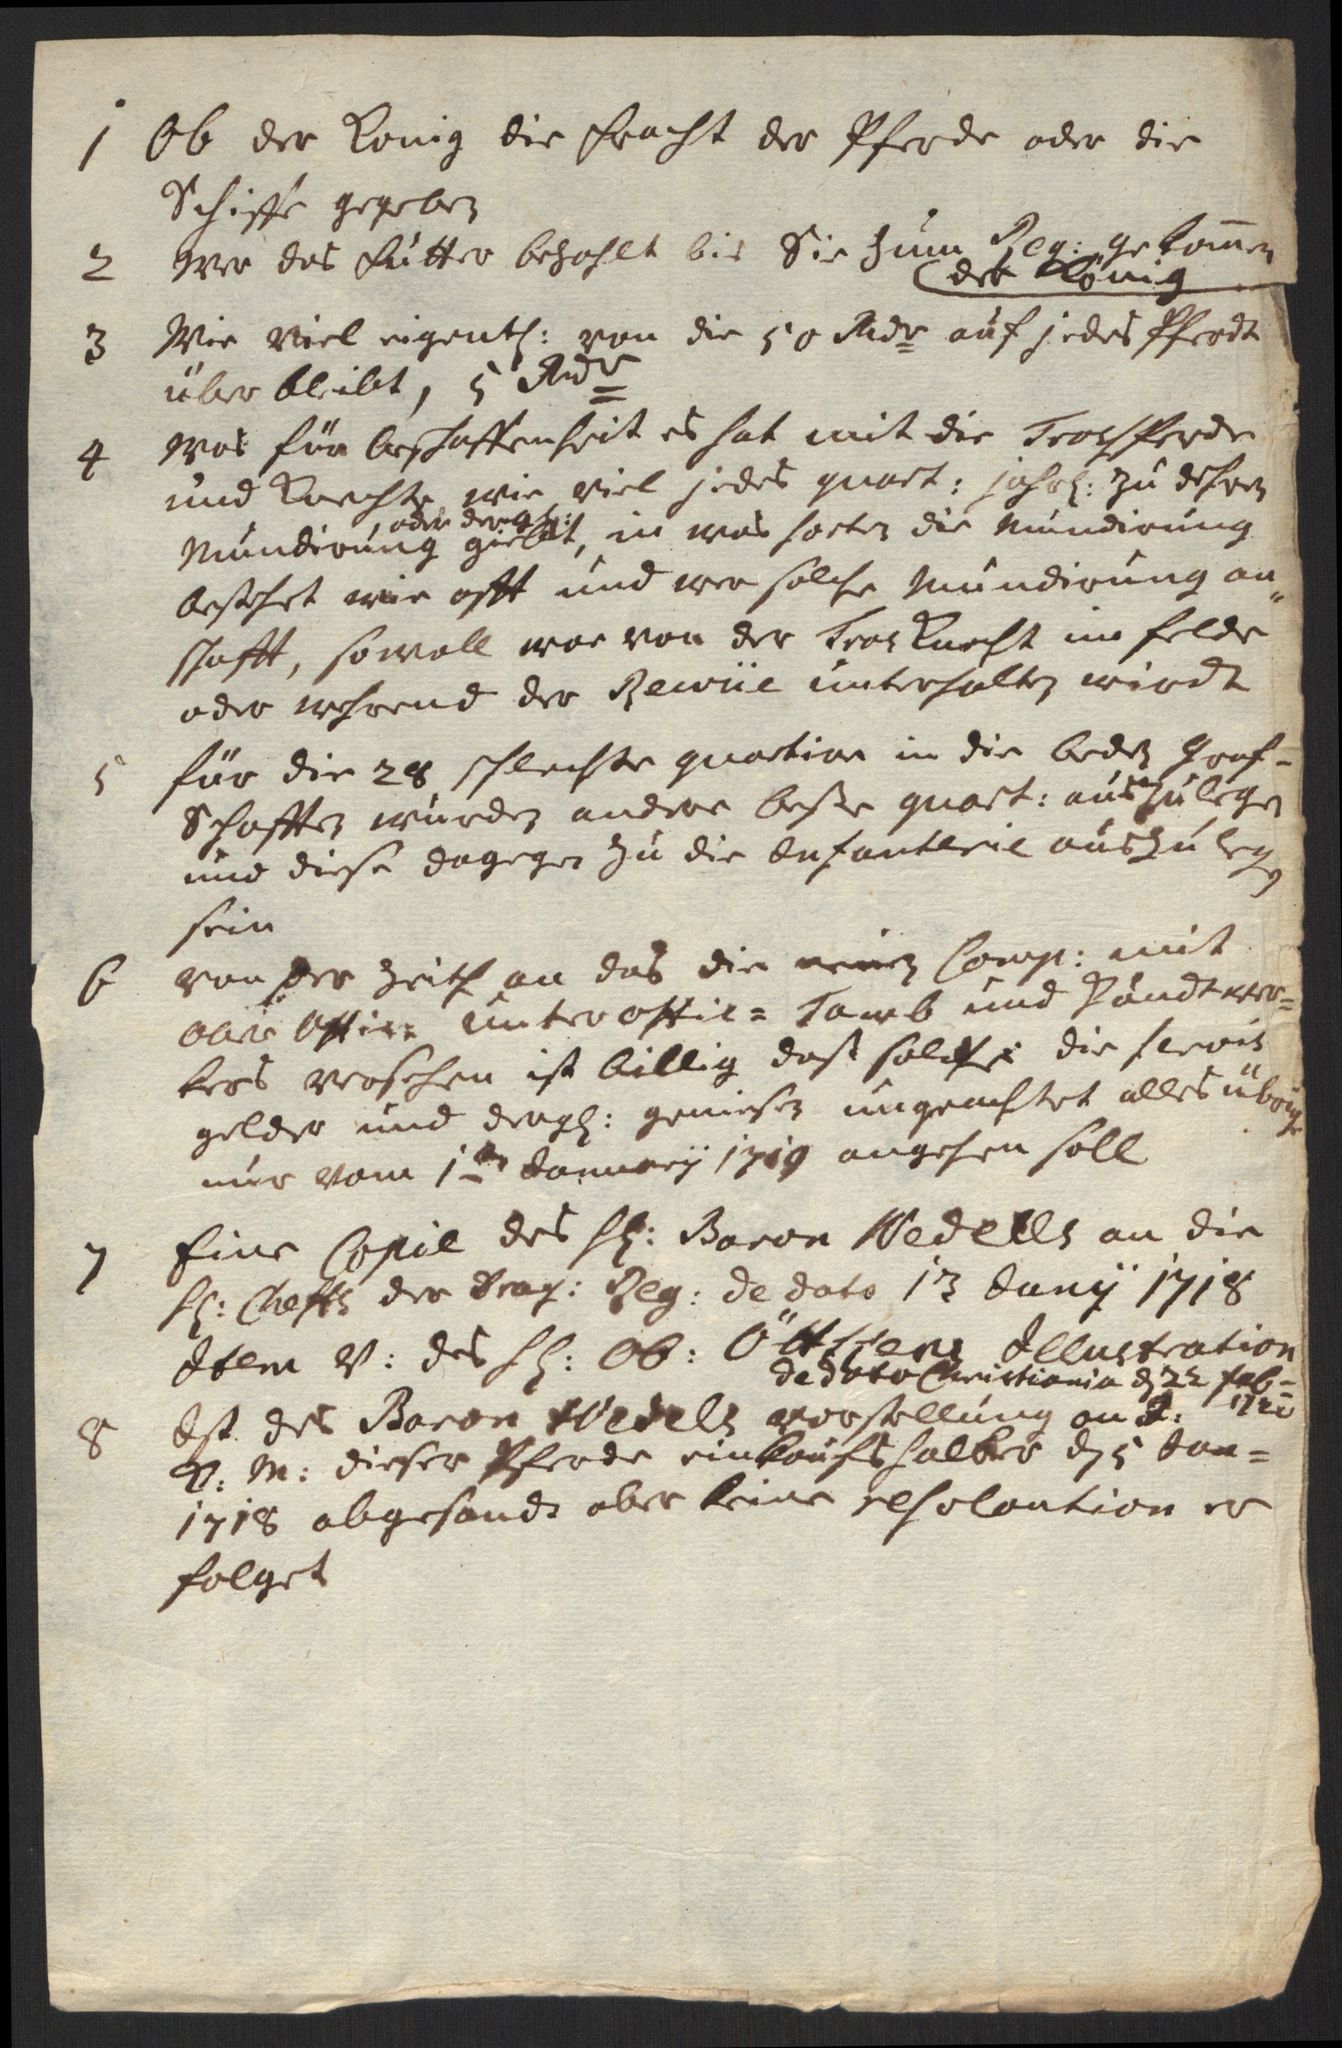 1 Ob der König die fracht der Pferde oder die
Schiffe gegeben
2 Wer das futter bezahlt bis Sie zum Reg: gekom̄en
der König
3 Wie viel eigentl: von die 50 Rdr auf jedes Pferdt
über bleibt, 5 Rdr
4 Was für beschaffenheit es hat mit die Troßpferde
und Knechte wie viel jedes quart: jahrl: zu dehren
oder dergl:
Mundirung giebt, in was sorten die Mundirung
bestehet wie offt und wer solche Mundirung an„
schafft, sowoll war von der Tros Knecht im felde
oder wehrend der Revüe unterhalten wirdt
5 für die 28 schlechte quartire in die beden Graf-
Schafften wurden andere beße quart: auszulegen
und diese dagegen zu die Infanterie auszulegen
sein
6 von der Zeith an das die neuen Comp: mit
ober Offic: unteroffic= Tamb und Handtwer=
kers versehen ist billig daß solche die servis
gelder und dergl: geniesen ungeachtet alles übrige
nur vom 1ten January 1719 angehen soll
7 Eine Copie des H: Baron Wedells an die
H: Cheffs der Drag: Reg: de dato 13 Juny 1718
Item V: des H: Ob: Öttkens Illustration
de dato Christiania d 22 feb=
1720
8 Ist des Baron Wedells vorstellung an I:
K: M: dieser Pferde einkaufs halber d 5 Jan=
1718 abgesandt aber keine resoloution er
folget